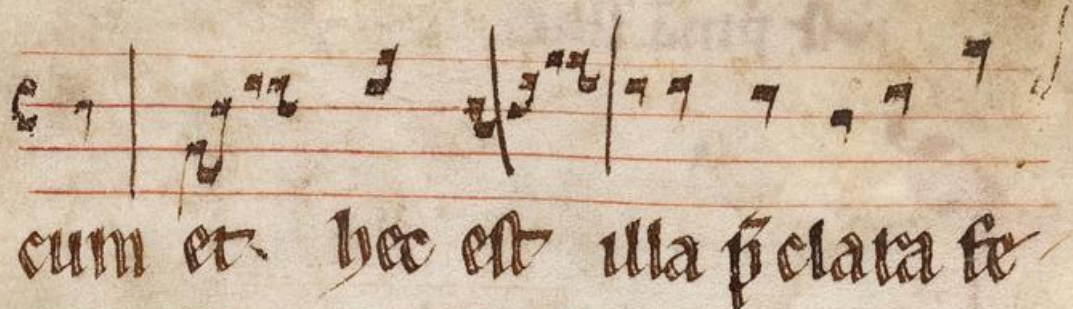 cum et hec est illa p̄clara fe-